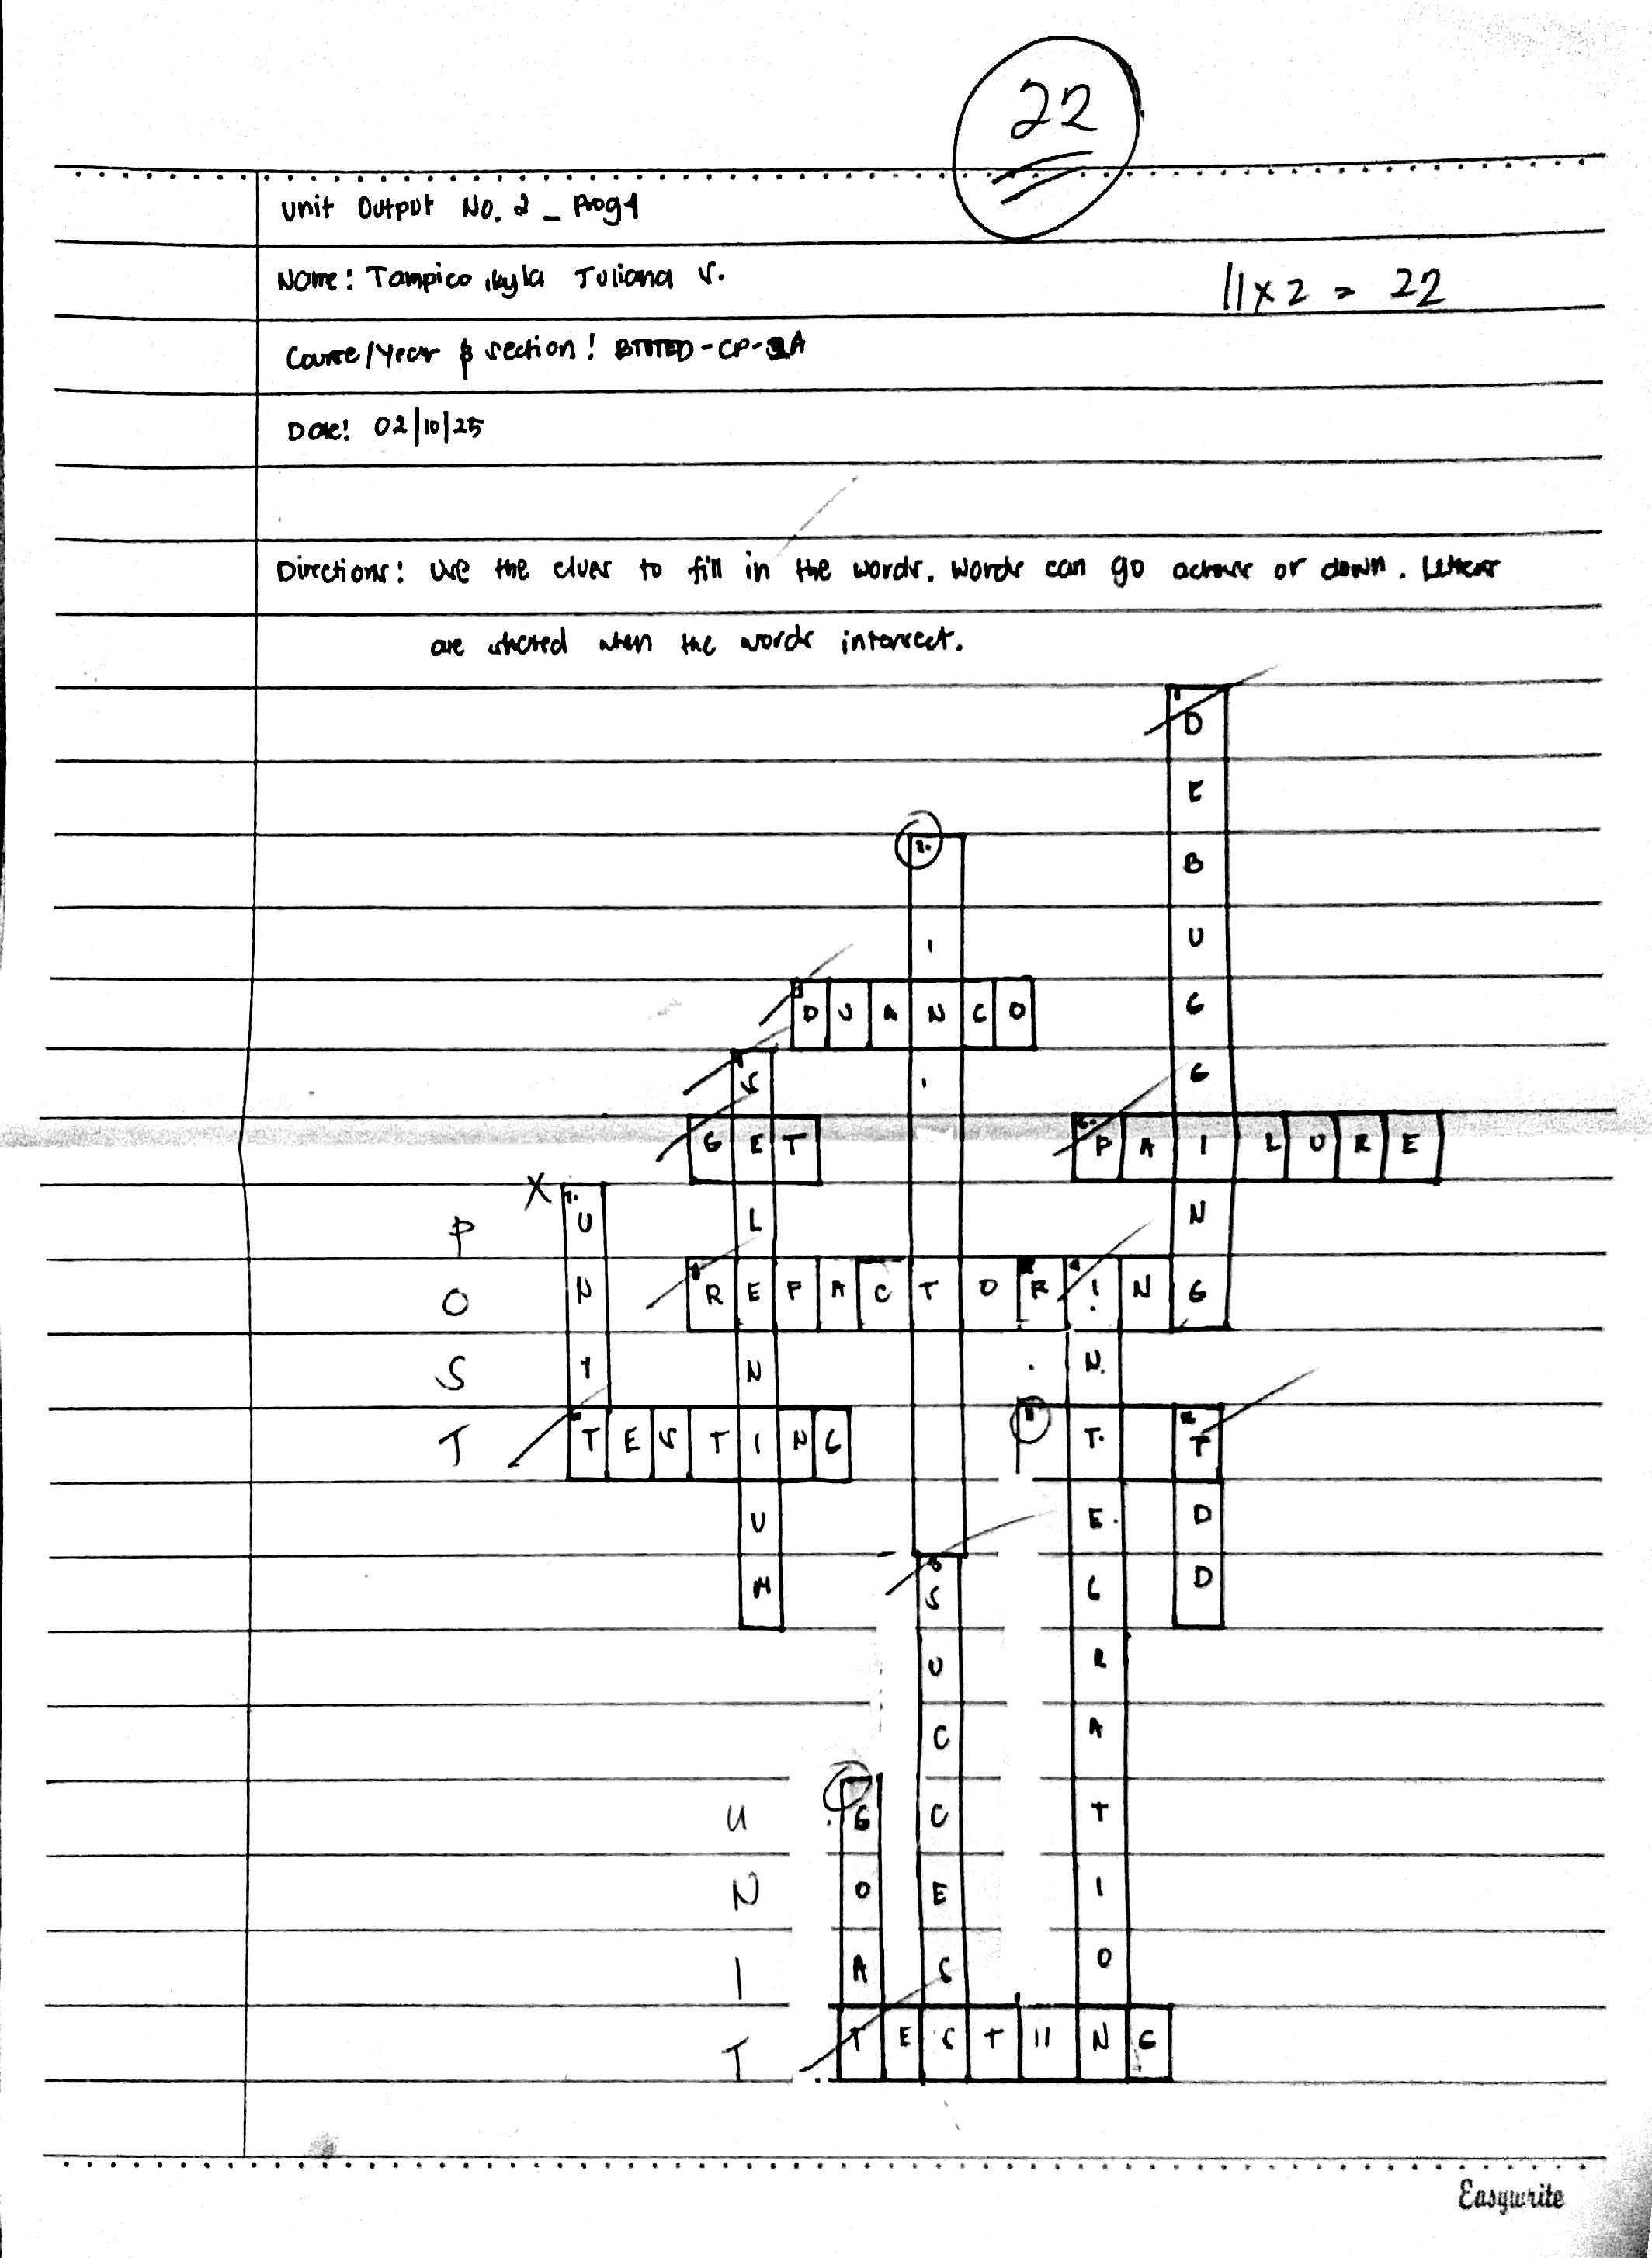 22
Unit Output No. 2 _ Prog4
Name: Tampico, Kyla Juliana S.
11 x 2 = 22
Course/Year & Section: BTVTED-CP-3A
Date: 02/10/25
Directions: Use the clues to fill in the words. Words can go across or down. Letters
are shared when the words intersect.
1 DEBUGGING
2.
3 DJANGO
4 SELENIUM
GET
6. FAILURE
X 7. UNIT
POST
8 REFACTORING
9 INTEGRATION
10 TESTING
11
12 TDD
13 SUCCESS
GOAT
UNIT
TESTIING
Easywrite